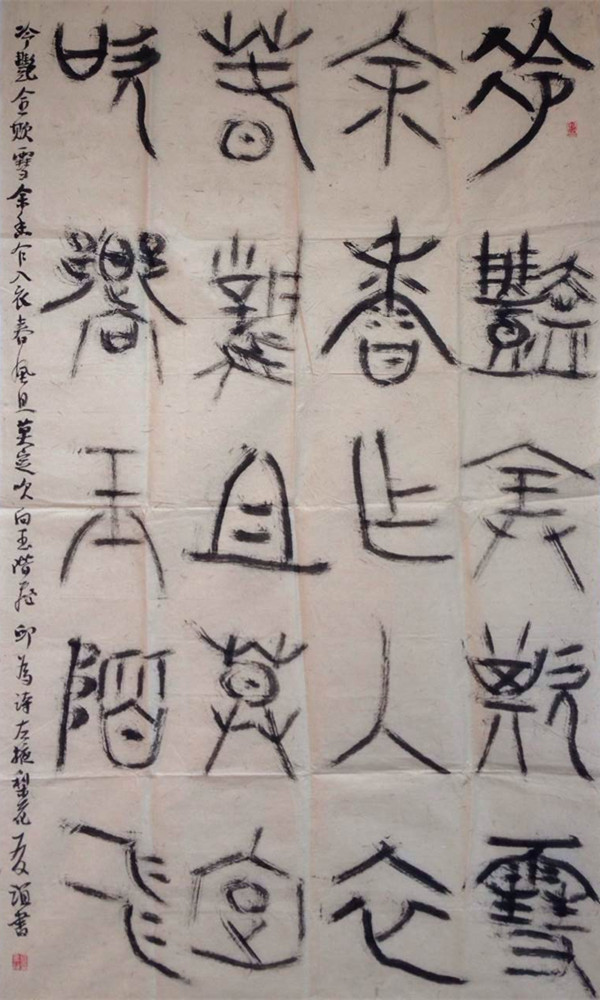 冷豔全欺雪
余香乍入衣
春風且莫定
吹嚮玉階飛
冷艷全欺雪余香乍入衣春風且莫定吹向玉階飛 邱為詩左掖梨花 書